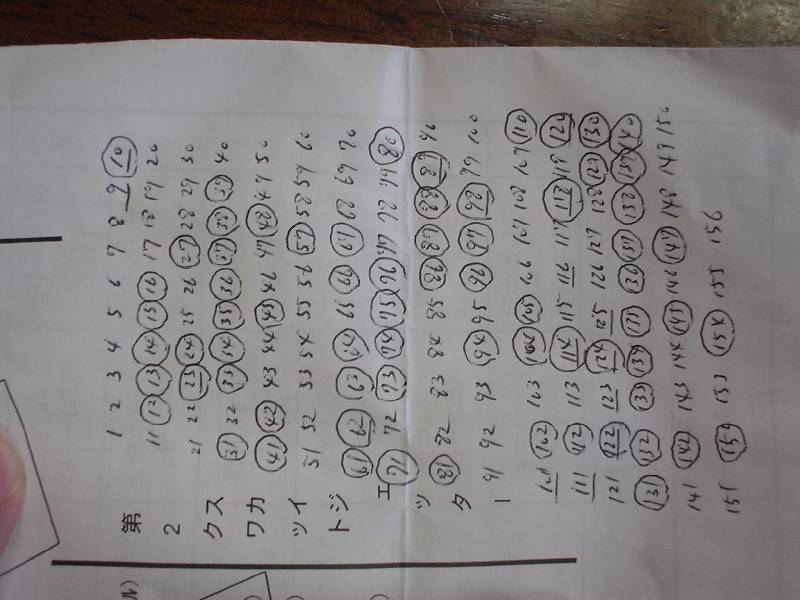 1 2 3 4 5 6 7 8 9 10
11 12 13 14 15 16 17 18 19 20
21 22 23 24 25 26 27 28 29 30
31 32 33 34 35 36 37 38 39 40
41 42 43 44 45 46 47 48 49 50
51 52 53 54 55 56 57 58 59 60
61 62 63 64 65 66 67 68 69 70
71 72 73 74 75 76 77 78 79 80
81 82 83 84 85 86 87 88 89 90
91 92 93 94 95 96 97 98 99 100
101 102 103 104 105 106 107 108 109 110
111 112 113 114 115 116 117 118 119 120
121 122 123 124 125 126 127 128 129 130
131 132 133 134 135 136 137 138 139 140
141 142 143 144 145 146 147 148 149 150
151 152 153 154 155 156
第
2
クス
ワカ
ツイ
トジ
エ
ッ
タ
ー